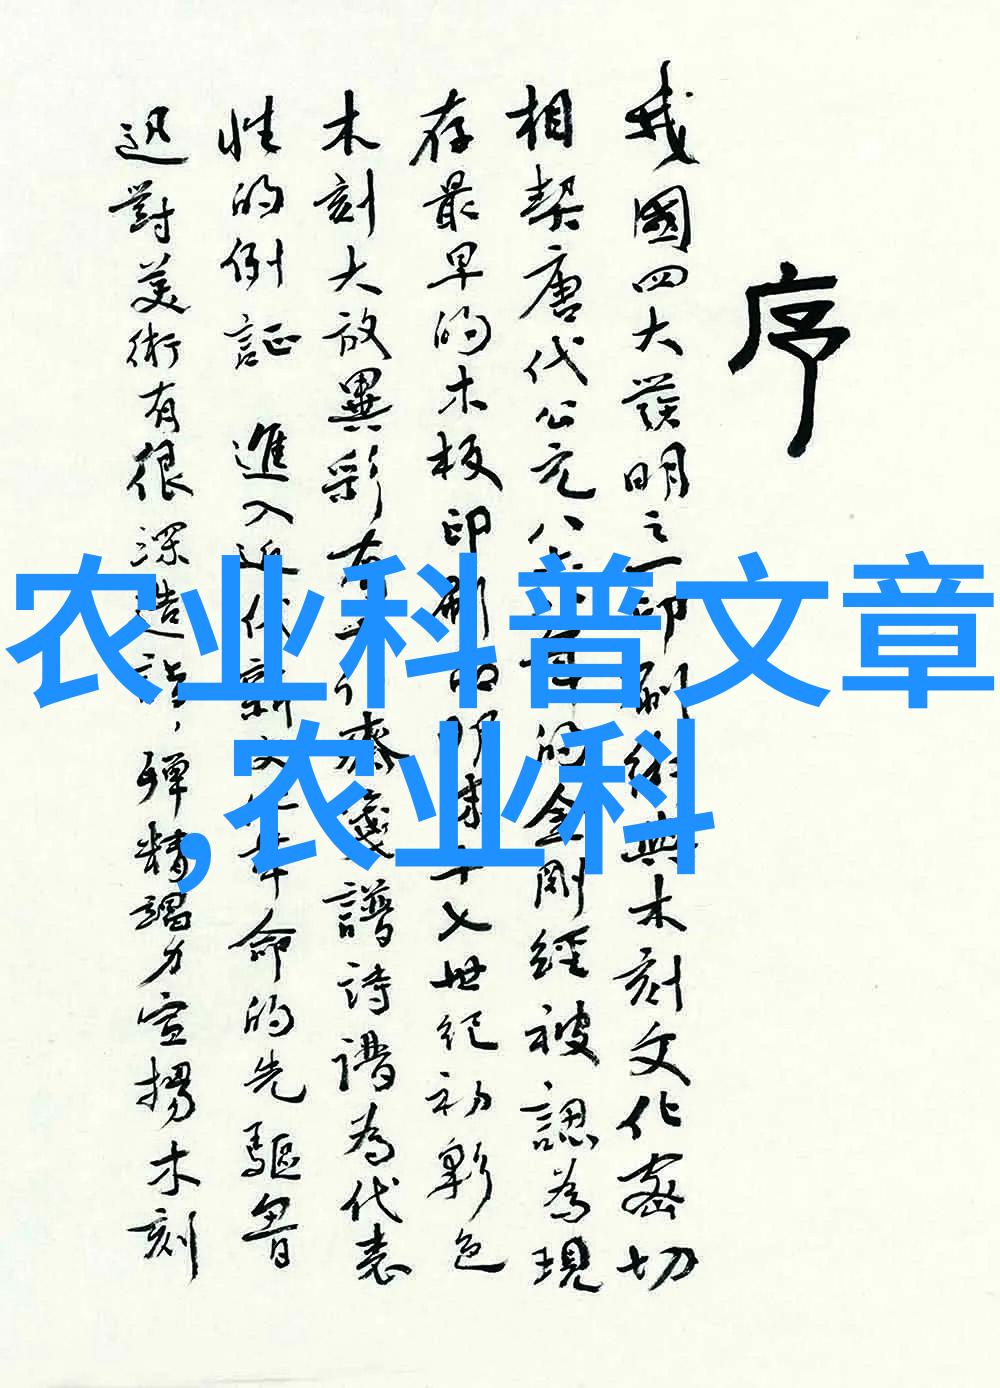 序
我國四大發明之一印刷術與木刻文化密切
相契唐代公元八六八年的金剛經被認為現
存最早的木板印刷品明末十七世紀初彩色
木刻大放異彩有十竹齋箋譜詩譜為代表
性的例証 進入近代新文化革命的先驅魯
迅對美術有很深造詣，殫精竭力宣揚木刻
农业科普文章
,农业科